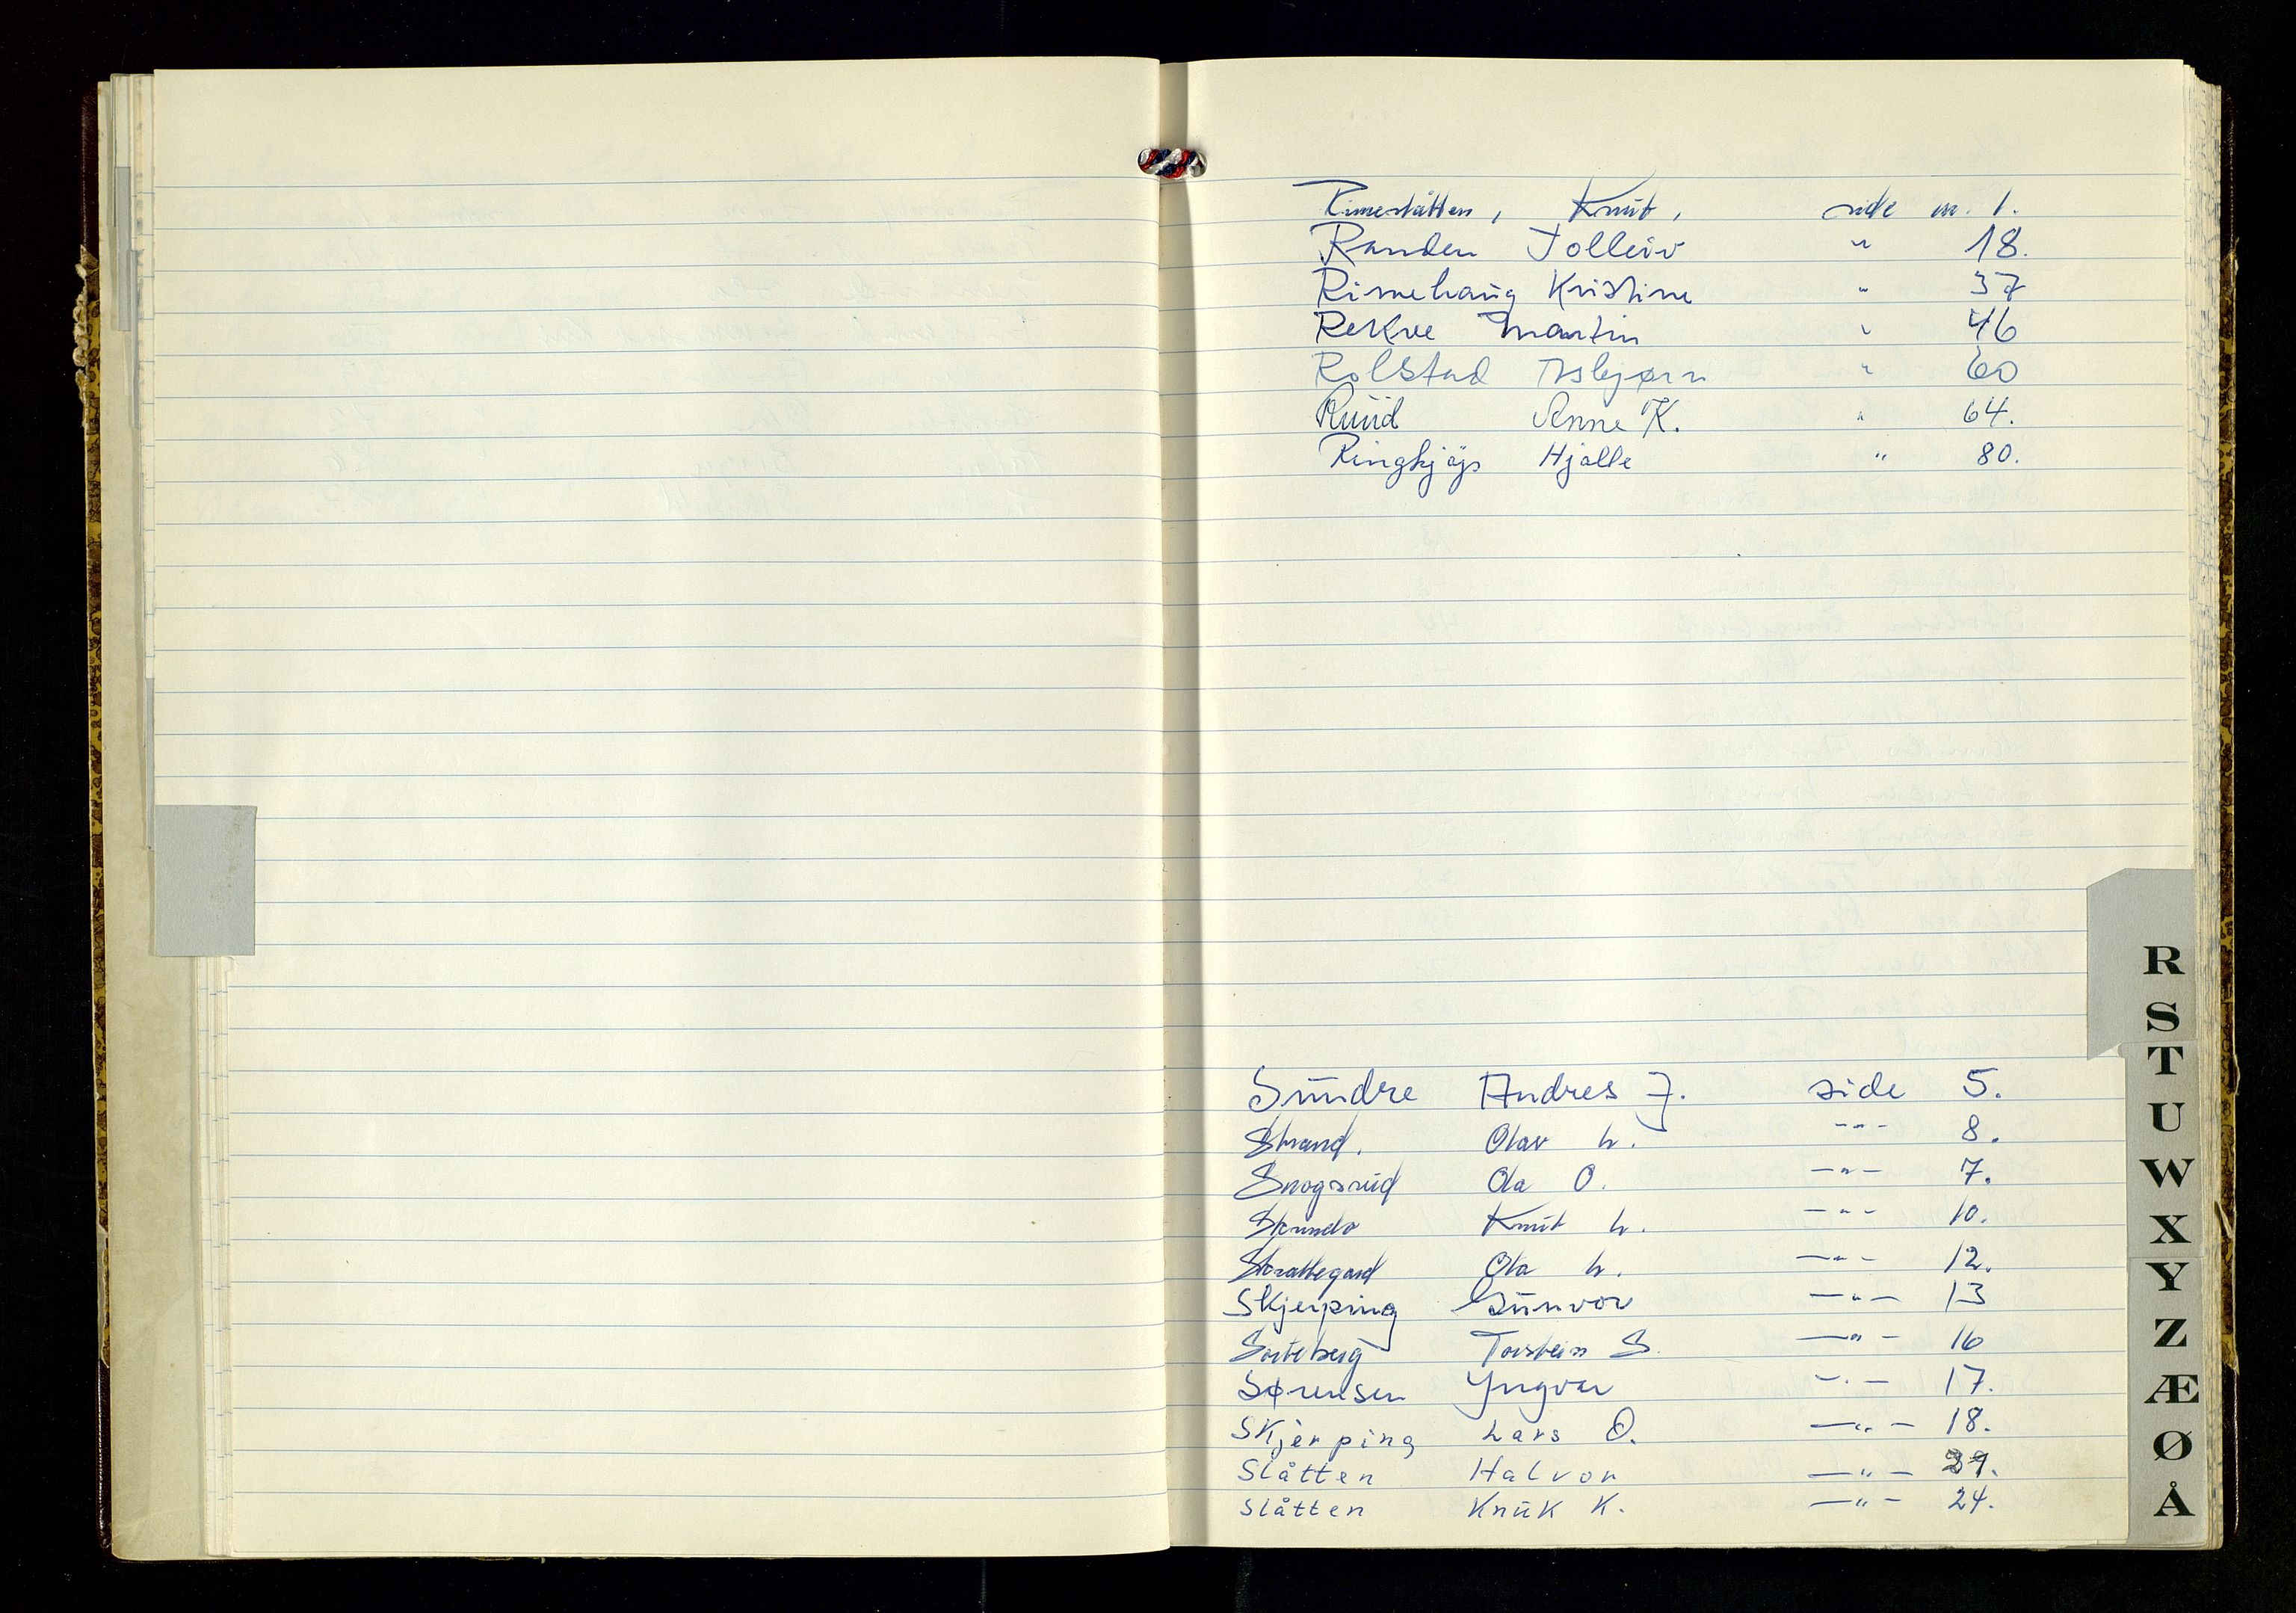 Rimeslåtten, Knut, side nr. 1.
Randen Tolleiv " 18.
Rimehaug Kristine " 37
Rekve Martin " 46
Rolstad Asbjørn " 60
Ruud Anne K. " 64.
Ringkjøp Hjalle " 80.
R
S
T
U
W
X
Y
Z
Æ
Ø
Å
Sundre Andres J. side 5.
Strand. Olav L. -"- 8.
Snogsrud Ola O. -"- 7.
Knut L. -"- 10.
Skrattegard Ola L. -"- 12.
Skjerping Gunvor -"- 13
Sorteberg Torstein S. -"- 16
Sørensen Yngvar -"- 17.
Skjerping Lars O. -"- 18.
Slåtten Halvor -"- 39.
Slåtten Knut K. -"- 24.